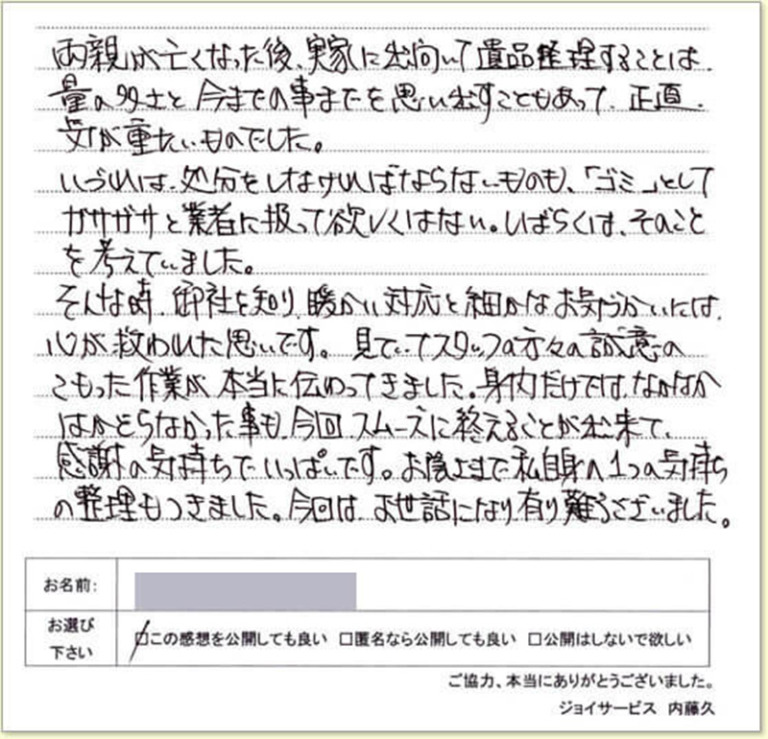 両親が亡くなった後、実家に出向いて遺品整理することは、
量の多さと今までの事までを思い出すこともあって、正直、
気が重たいものでした。
いづれは、処分をしなければならないものも、「ゴミ」として
ガサガサと業者に扱って欲しくはない。しばらくは、そのこと
を考えていました。
そんな時、御社を知り、暖かい対応と細かなお気づかいには、
心が救われた思いです。見ていてスタッフの方々の誠意の
こもった作業が、本当に伝わってきました。身内だけでは、なかなか
はかどらなかった事も、今回スムーズに終えることが出来て、
感謝の気持ちでいっぱいです。お陰さまで私自身の1つの気持ち
の整理もつきました。今回は、お世話になり有り難うございました。
お名前:
お選び
下さい
□この感想を公開しても良い □匿名なら公開しても良い □公開はしないで欲しい
ご協力、本当にありがとうございました。
ジョイサービス 内藤久